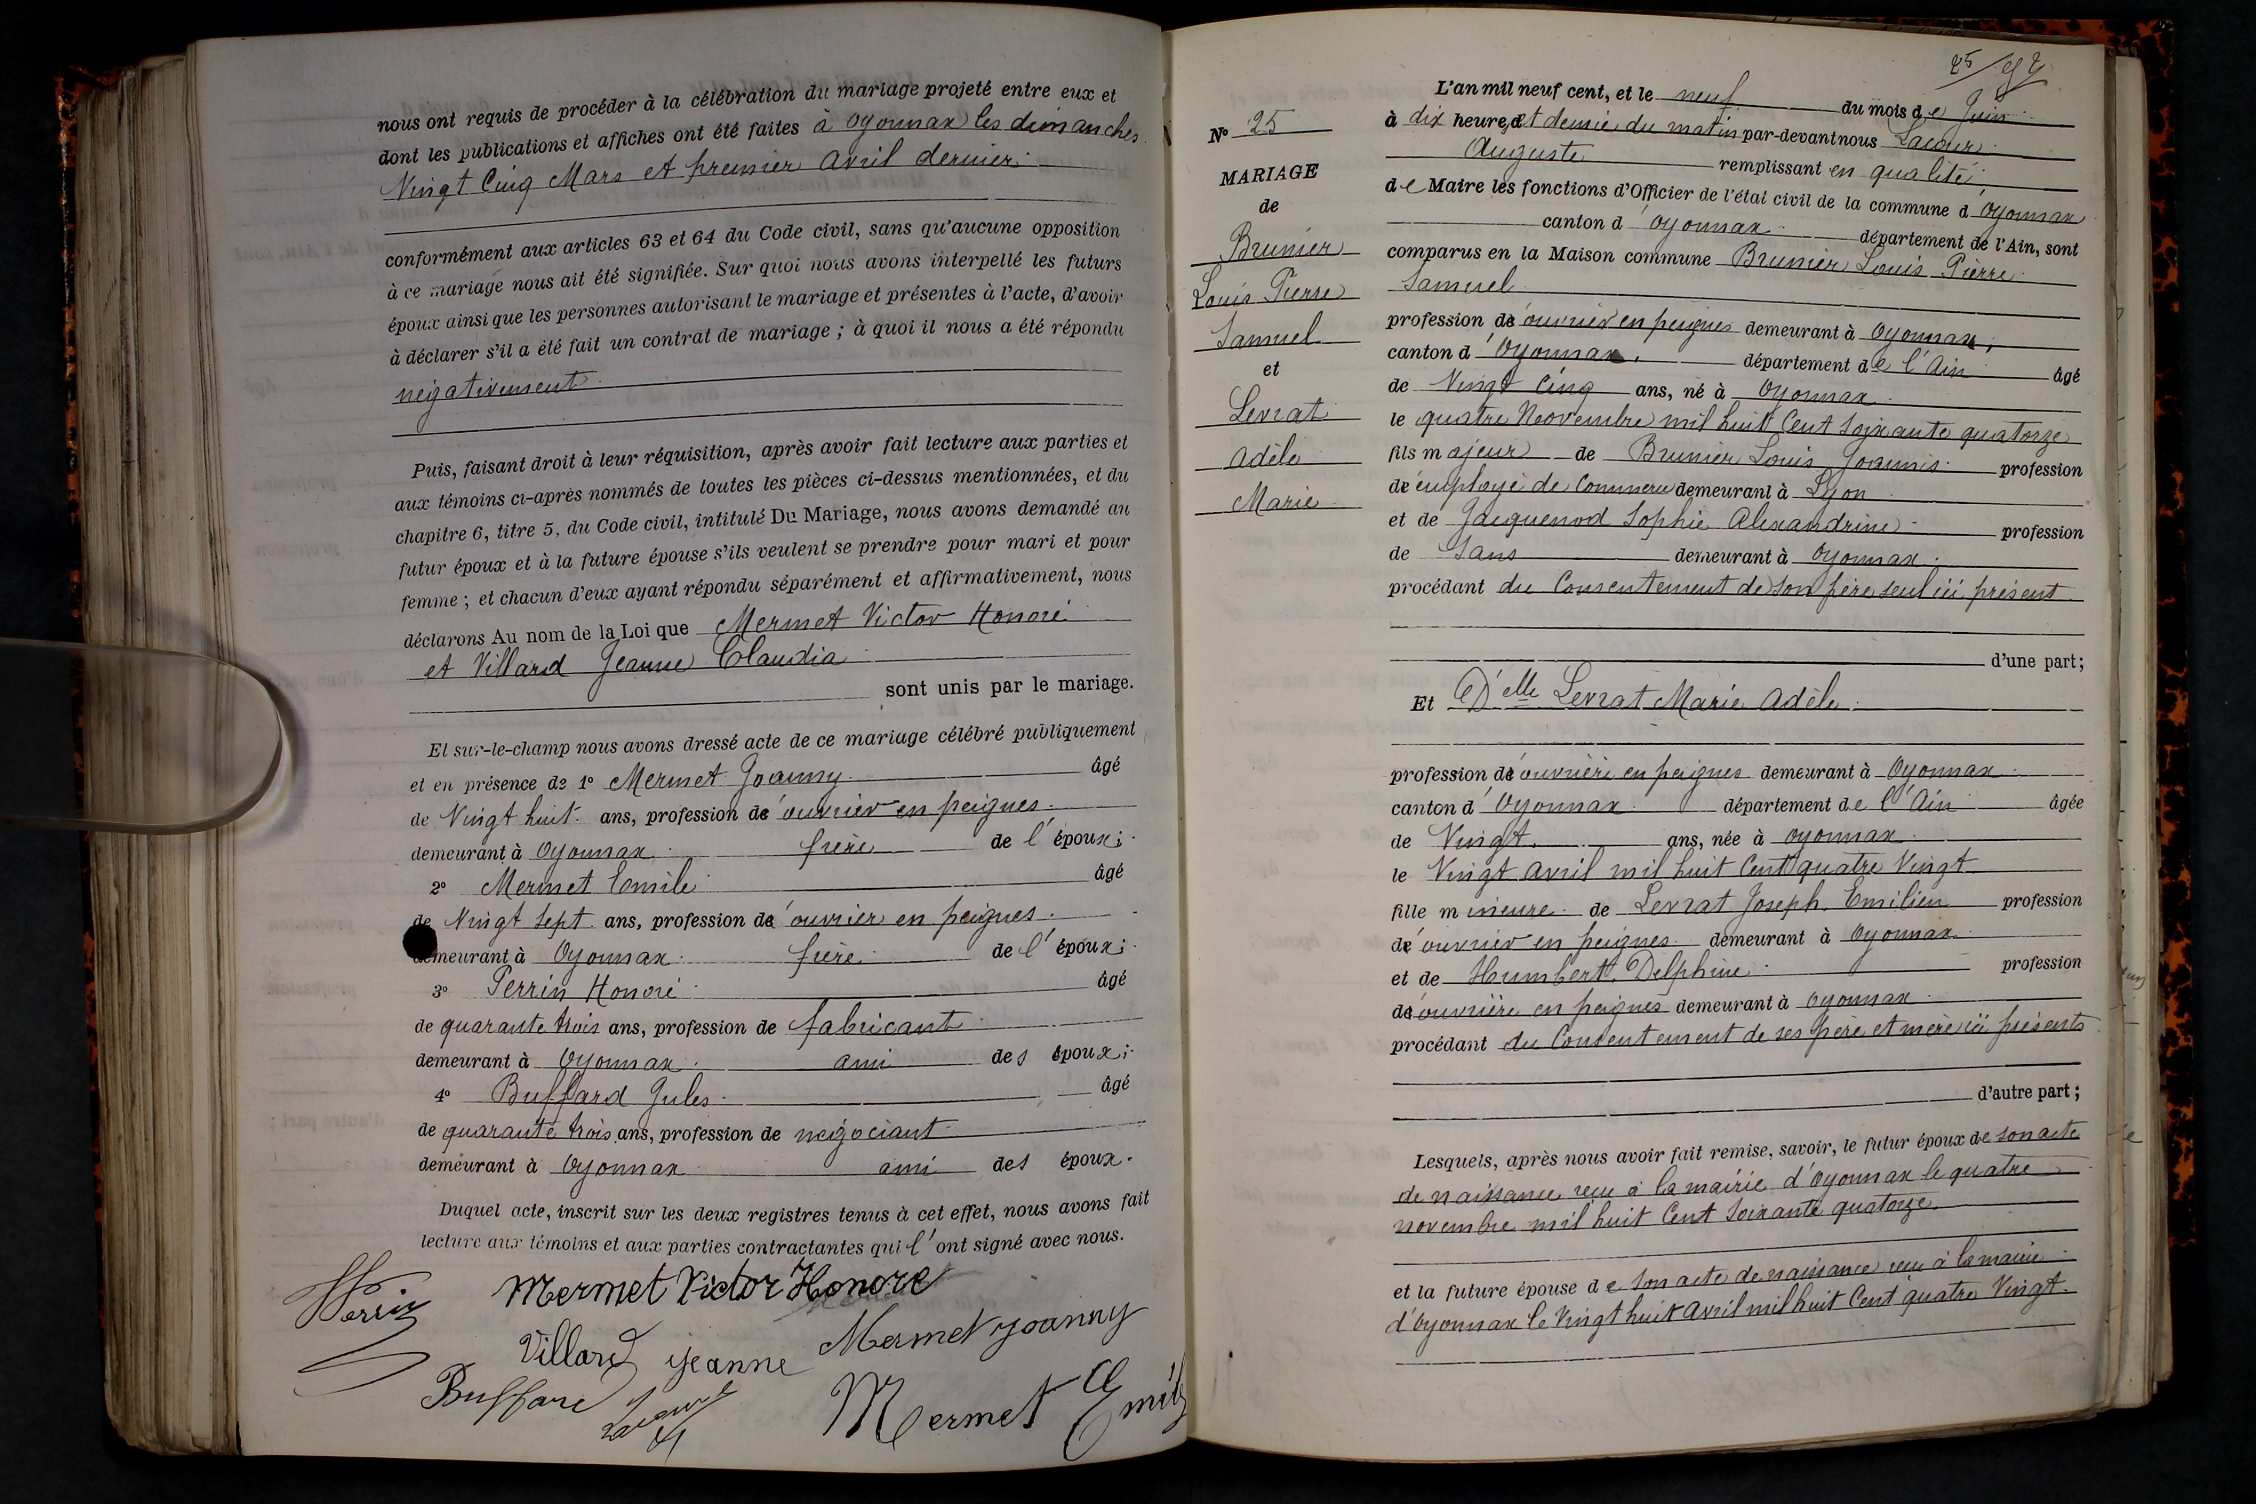 nous ont requis de procéder à la célébration du mariage projeté entre eux et
dont les publications et affiches ont été faites à Oyonnax les dimanches
Vingt Cinq Mars et premier avril dernier.
conformément aux articles 63 et 64 du Code civil, sans qu'aucune opposition
à ce mariage nous ait été signifiée. Sur quoi nous avons interpellé les futurs
époux ainsi que les personnes autorisant le mariage et présentes à l'acte, d'avoir
à déclarer s'il a été fait un contrat de mariage ; à quoi il nous a été répondu
négativement
Puis, faisant droit à leur réquisition, après avoir fait lecture aux parties et
aux témoins ci-après nommés de toutes les pièces ci-dessus mentionnées, et du
chapitre 6, titre 5, du Code civil, intitulé Du Mariage, nous avons demandé au
futur époux et à la future épouse s'ils veulent se prendre pour mari et pour
femme ; et chacun d'eux ayant répondu séparément et affirmativement, nous
déclarons Au nom de la Loi que Mermet Victor Honoré
et Villard Jeanne Claudia
sont unis par le mariage.
Et sur-le-champ nous avons dressé acte de ce mariage célébré publiquement
et en présence de 1° Mermet Joanny âgé
de Vingt huit ans, profession de ouvrier en peignes.
demeurant à Oyonnax frère de l'époux ;
2° Mermet Emile âgé
de Vingt sept ans, profession de ouvrier en peignes.
demeurant à Oyonnax frère de l'époux ;
3° Perrin Honoré âgé
de quarante trois ans, profession de fabricant
demeurant à Oyonnax ami des époux ;
4° Buffard Jules âgé
de quarante trois ans, profession de négociant
demeurant à Oyonnax ami des époux.
Duquel acte, inscrit sur les deux registres tenus à cet effet, nous avons fait
lecture aux témoins et aux parties contractantes qui l'ont signé avec nous.
HPerrin Mermet Victor Honoré
Villard jeanne Mermet joanny
Buffard Lacour Mermet Emile
25
N° 25
MARIAGE
de
Brunier
Louis Pierre
Samuel
et
Levrat
Adèle
Marie
L'an mil neuf cent, et le neuf du mois de Juin
à dix heures et demie du matin par-devant nous Lacour
Auguste remplissant en qualité
de Maire les fonctions d'Officier de l'état civil de la commune d'Oyonnax
canton d'Oyonnax département de l'Ain, sont
comparus en la Maison commune Brunier Louis Pierre
Samuel
profession de ouvrier en peignes demeurant à Oyonnax,
canton d'Oyonnax, département de l'Ain âgé
de Vingt Cinq ans, né à Oyonnax
le quatre Novembre mil huit Cent soixante quatorze
fils majeur de Brunier Louis Joannis profession
de employé de Commerce demeurant à Lyon
et de Jacquenod Sophie Alexandrine profession
de Sans demeurant à Oyonnax.
procédant du Consentement de son père seul ici présent
d'une part ;
Et D'elle Levrat Marie Adèle
profession de ouvrière en peignes demeurant à Oyonnax
canton d'Oyonnax département de l'Ain âgée
de Vingt ans, née à Oyonnax
le Vingt avril mil huit Cent quatre Vingt
fille mineure de Levrat Joseph Emilien profession
de ouvrier en peignes demeurant à Oyonnax
et de Humbert Delphine profession
de ouvrière en peignes demeurant à Oyonnax
procédant du Consentement de ses père et mère ici présents
d'autre part ;
Lesquels, après nous avoir fait remise, savoir, le futur époux de son acte
de naissance reçu à la mairie d'Oyonnax le quatre
novembre mil huit Cent soixante quatorze
et la future épouse de son acte de naissance reçu à la mairie
d'Oyonnax le Vingt huit avril mil huit Cent quatre Vingt.